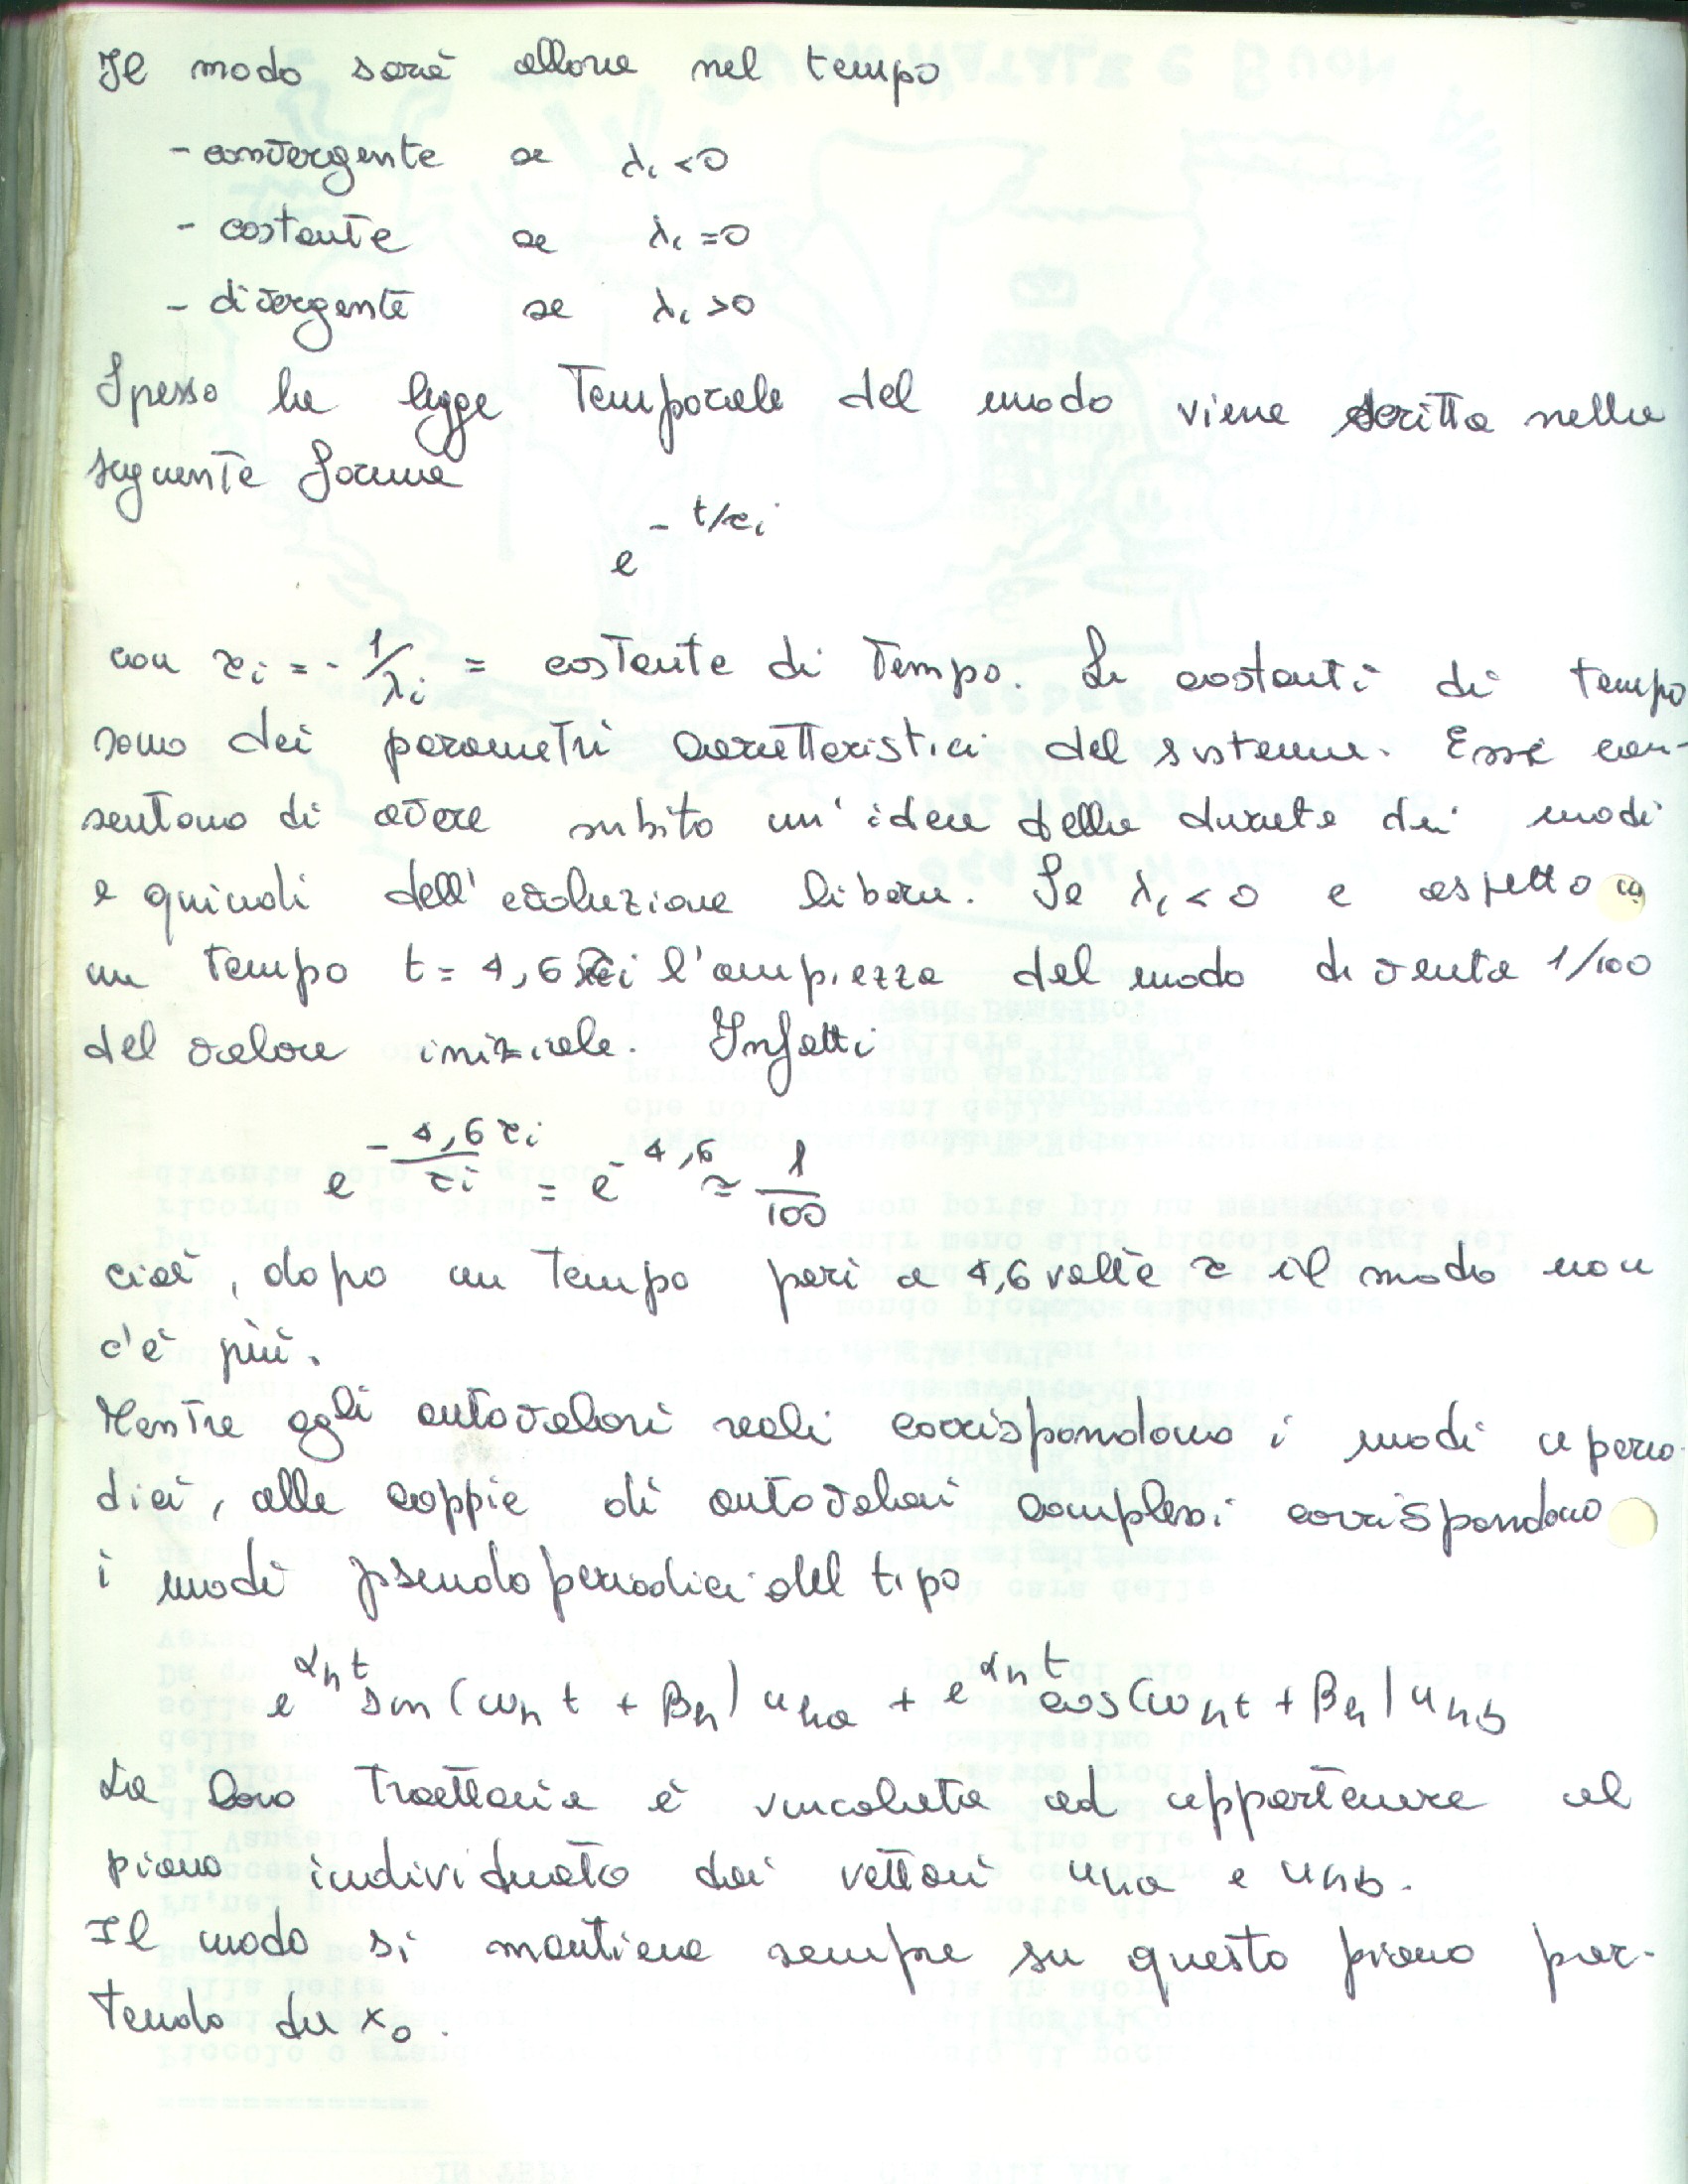 Il modo sarà allora nel tempo
- convergente se λi < 0
- costante se λi = 0
- divergente se λi > 0
Spesso la legge temporale del modo viene scritta nella
seguente forma
e^(- t/τi)
con τi = - 1/λi = costante di tempo. Le costanti di tempo
sono dei parametri caratteristici del sistema. Essi con-
sentono di avere subito un'idea della durata dei modi
e quindi dell'evoluzione libera. Se λi < 0 e aspetto
un tempo t = 4,6 τi l'ampiezza del modo diventa 1/100
del valore iniziale. Infatti
e^(- 4,6 τi / τi) = e^(- 4,6) ≃ 1/100
cioè, dopo un tempo pari a 4,6 volte τ il modo non
c'è più.
Mentre agli autovalori reali corrispondono i modi aperio-
dici, alle coppie di autovalori complessi corrispondono
i modi pseudoperiodici del tipo
e^(αh t) sin(ωh t + βh) uha + e^(αh t) cos(ωh t + βh) uhb
La loro traettoria è vincolata ad appartenere al
piano individuato dai vettori uha e uhb.
Il modo si mantiene sempre su questo piano par-
tendo da x0.